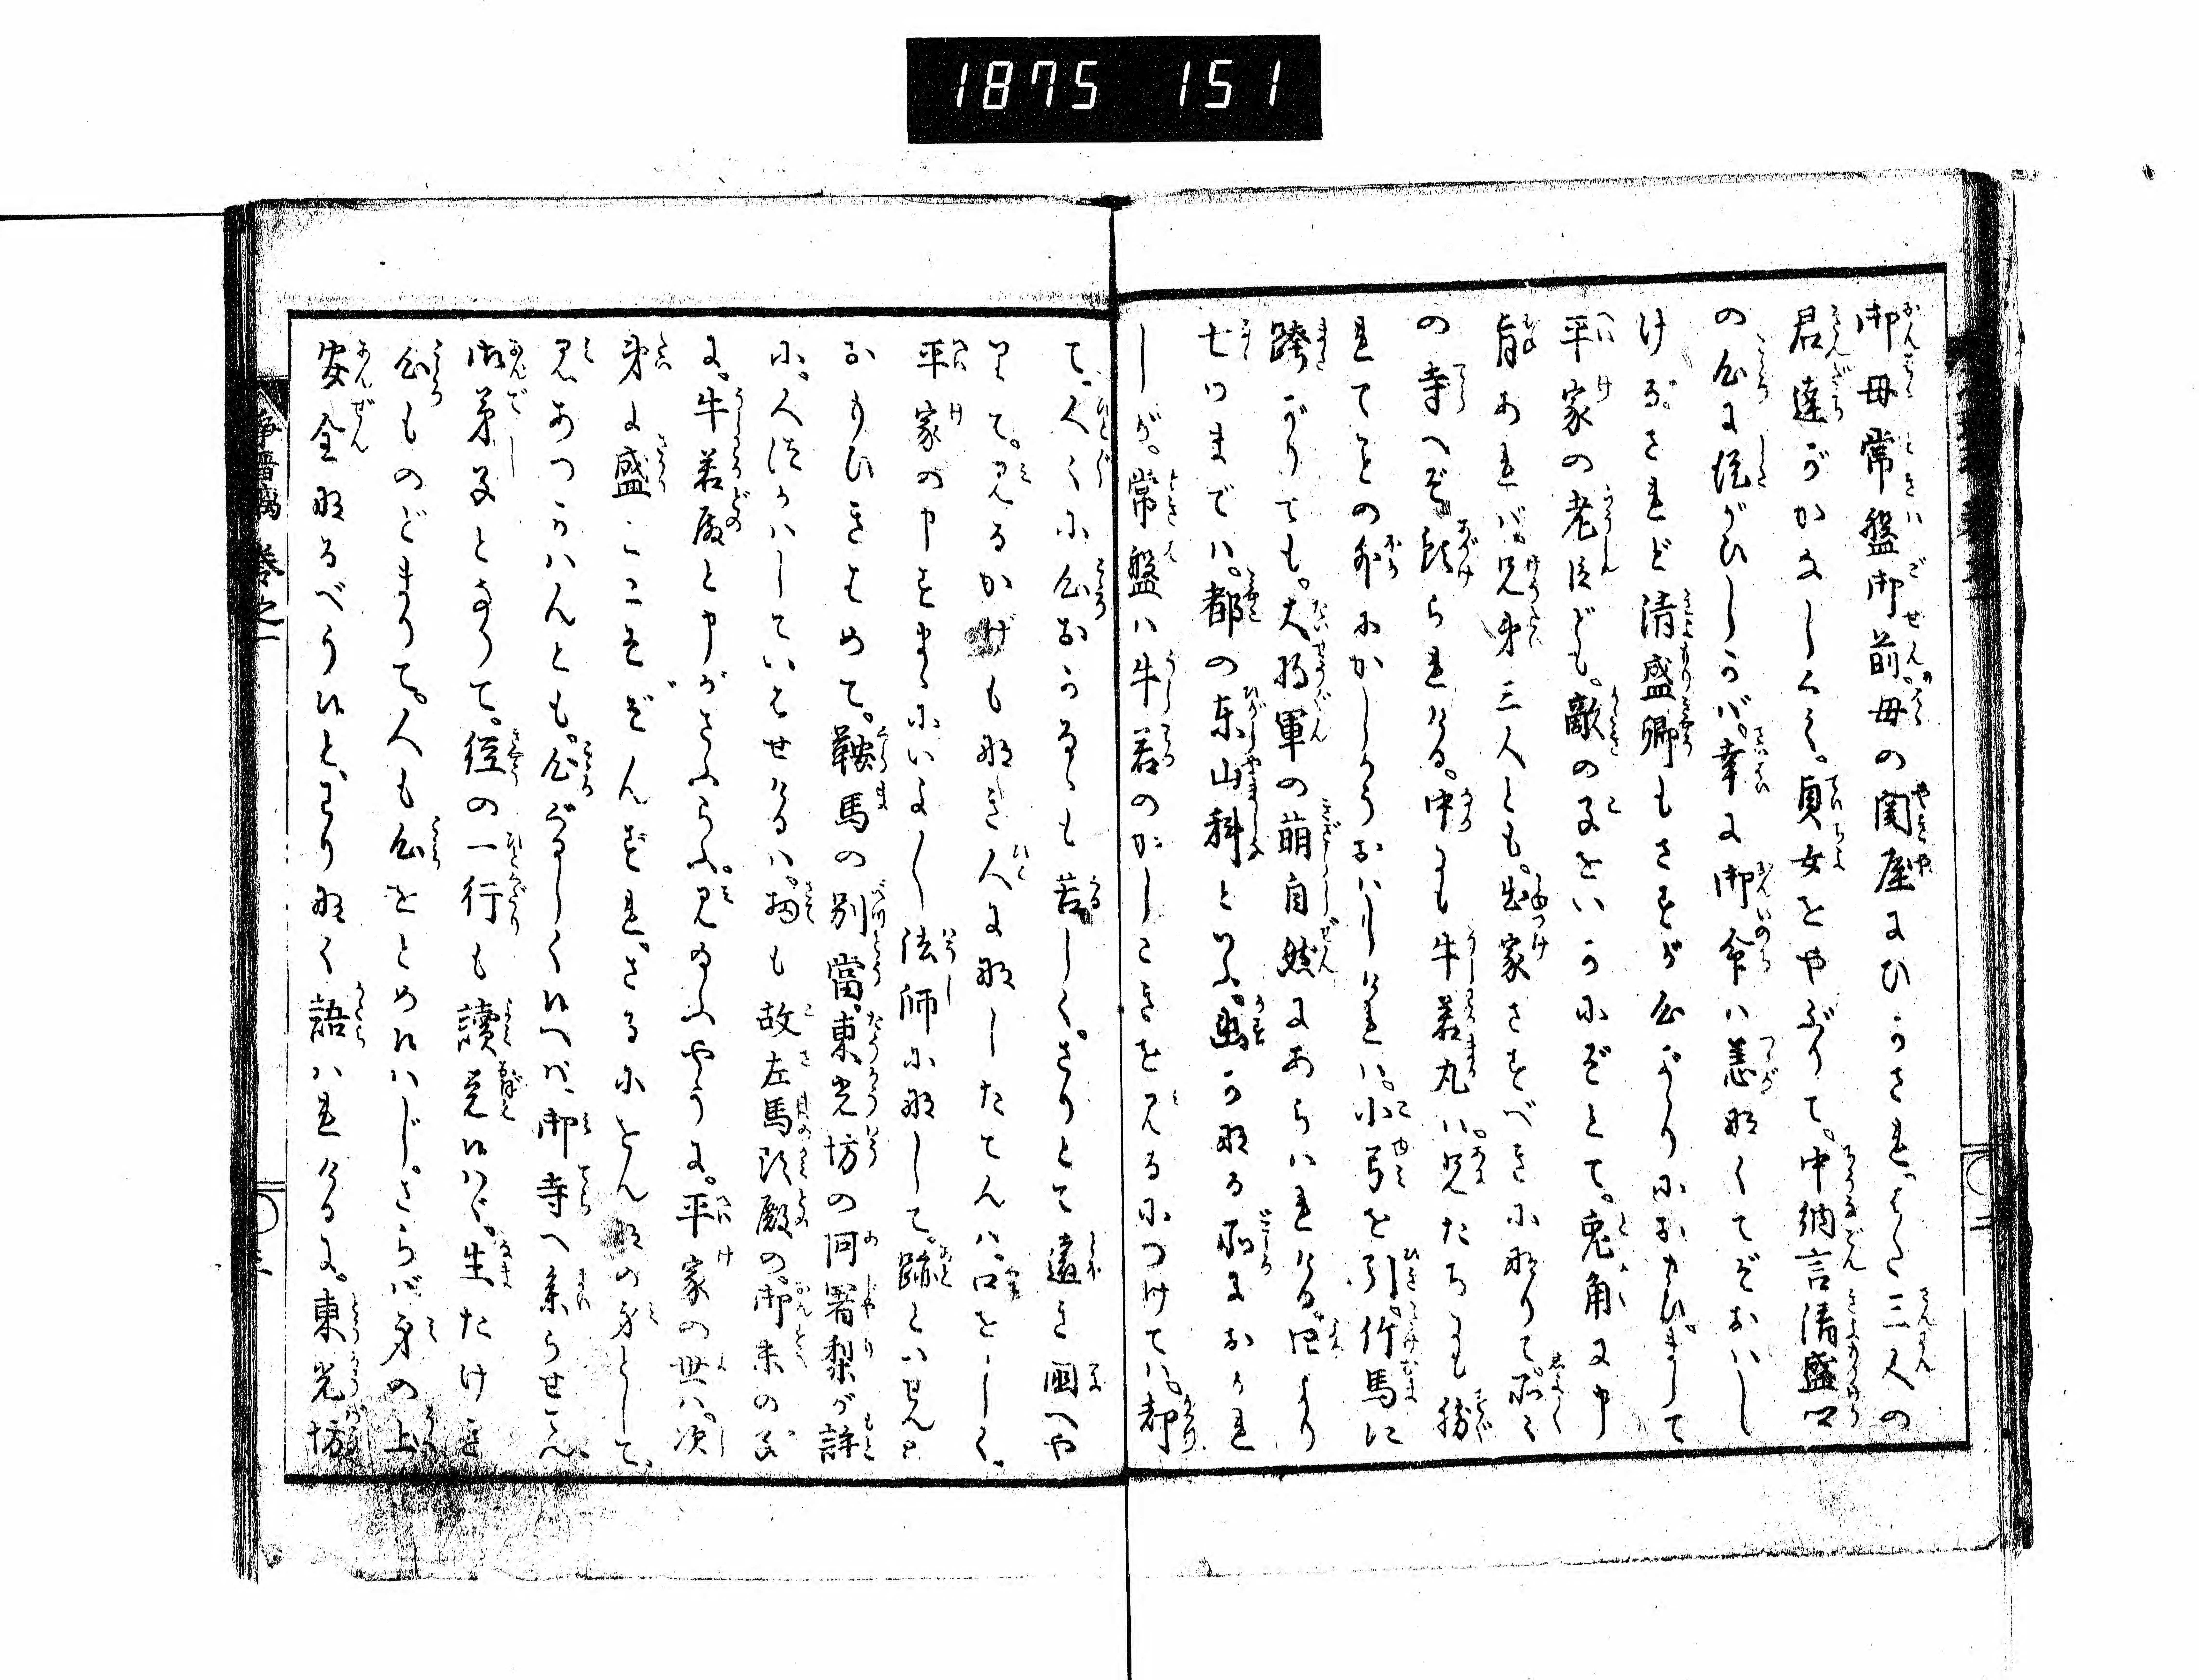 1875 151
御母常盤御前。母の関屋にひかされ。また三人の
君達がかなしくて。貞女をやぶりて。中納言清盛卿
の心に従がひしかバ。幸に御命ハ恙なくてぞおハし
ける。されど清盛卿もさすが心がゝりにおもひまして
平家の老臣ども。敵の子をいかにぞとて。兎角に申
旨あれバ。兄弟三人とも。出家さすべきになりて。所々
の寺へぞ預られける。中にも牛若丸ハ。兄たちにも勝
れてことの外にかしこうおハしければ。小弓を引。竹馬に
跨がりても。大将軍の萌自然にあらハれける。四より
七つまでハ。都の東山科といふ。幽かなる所におかれ
しが。常盤ハ牛若のかしこきを見るにつけてハ。都
て。人々に心おかるゝも苦しく。さりとて遠き国へや
りて。見るかげもなき人になしたてんハ。口をしく。
平家の申すまゝにいよ〳〵法師になして。跡とハせんと
おもひきはめて。鞍馬の別當。東光坊の阿闍梨が許
に。人はつかハしていはせけるハ。扨も故左馬頭殿の。御末の子
に。牛若殿と申がさふらふ。見給ふやうに。平家の世ハ。次
第に盛にこそぞんずれ。さるにをんなの身として。
見あつかハんとも。心ぐるしく候へバ。御寺へ参らせん。
御弟子となりて。経の一行も讀覚候ハゞ。生たけき
心ものどまりて。人も心をとめ候ハじ。さらバ身の上
安全なるべう候と。わりなく語ハれけるに。東光坊
浄瑠璃 巻之一